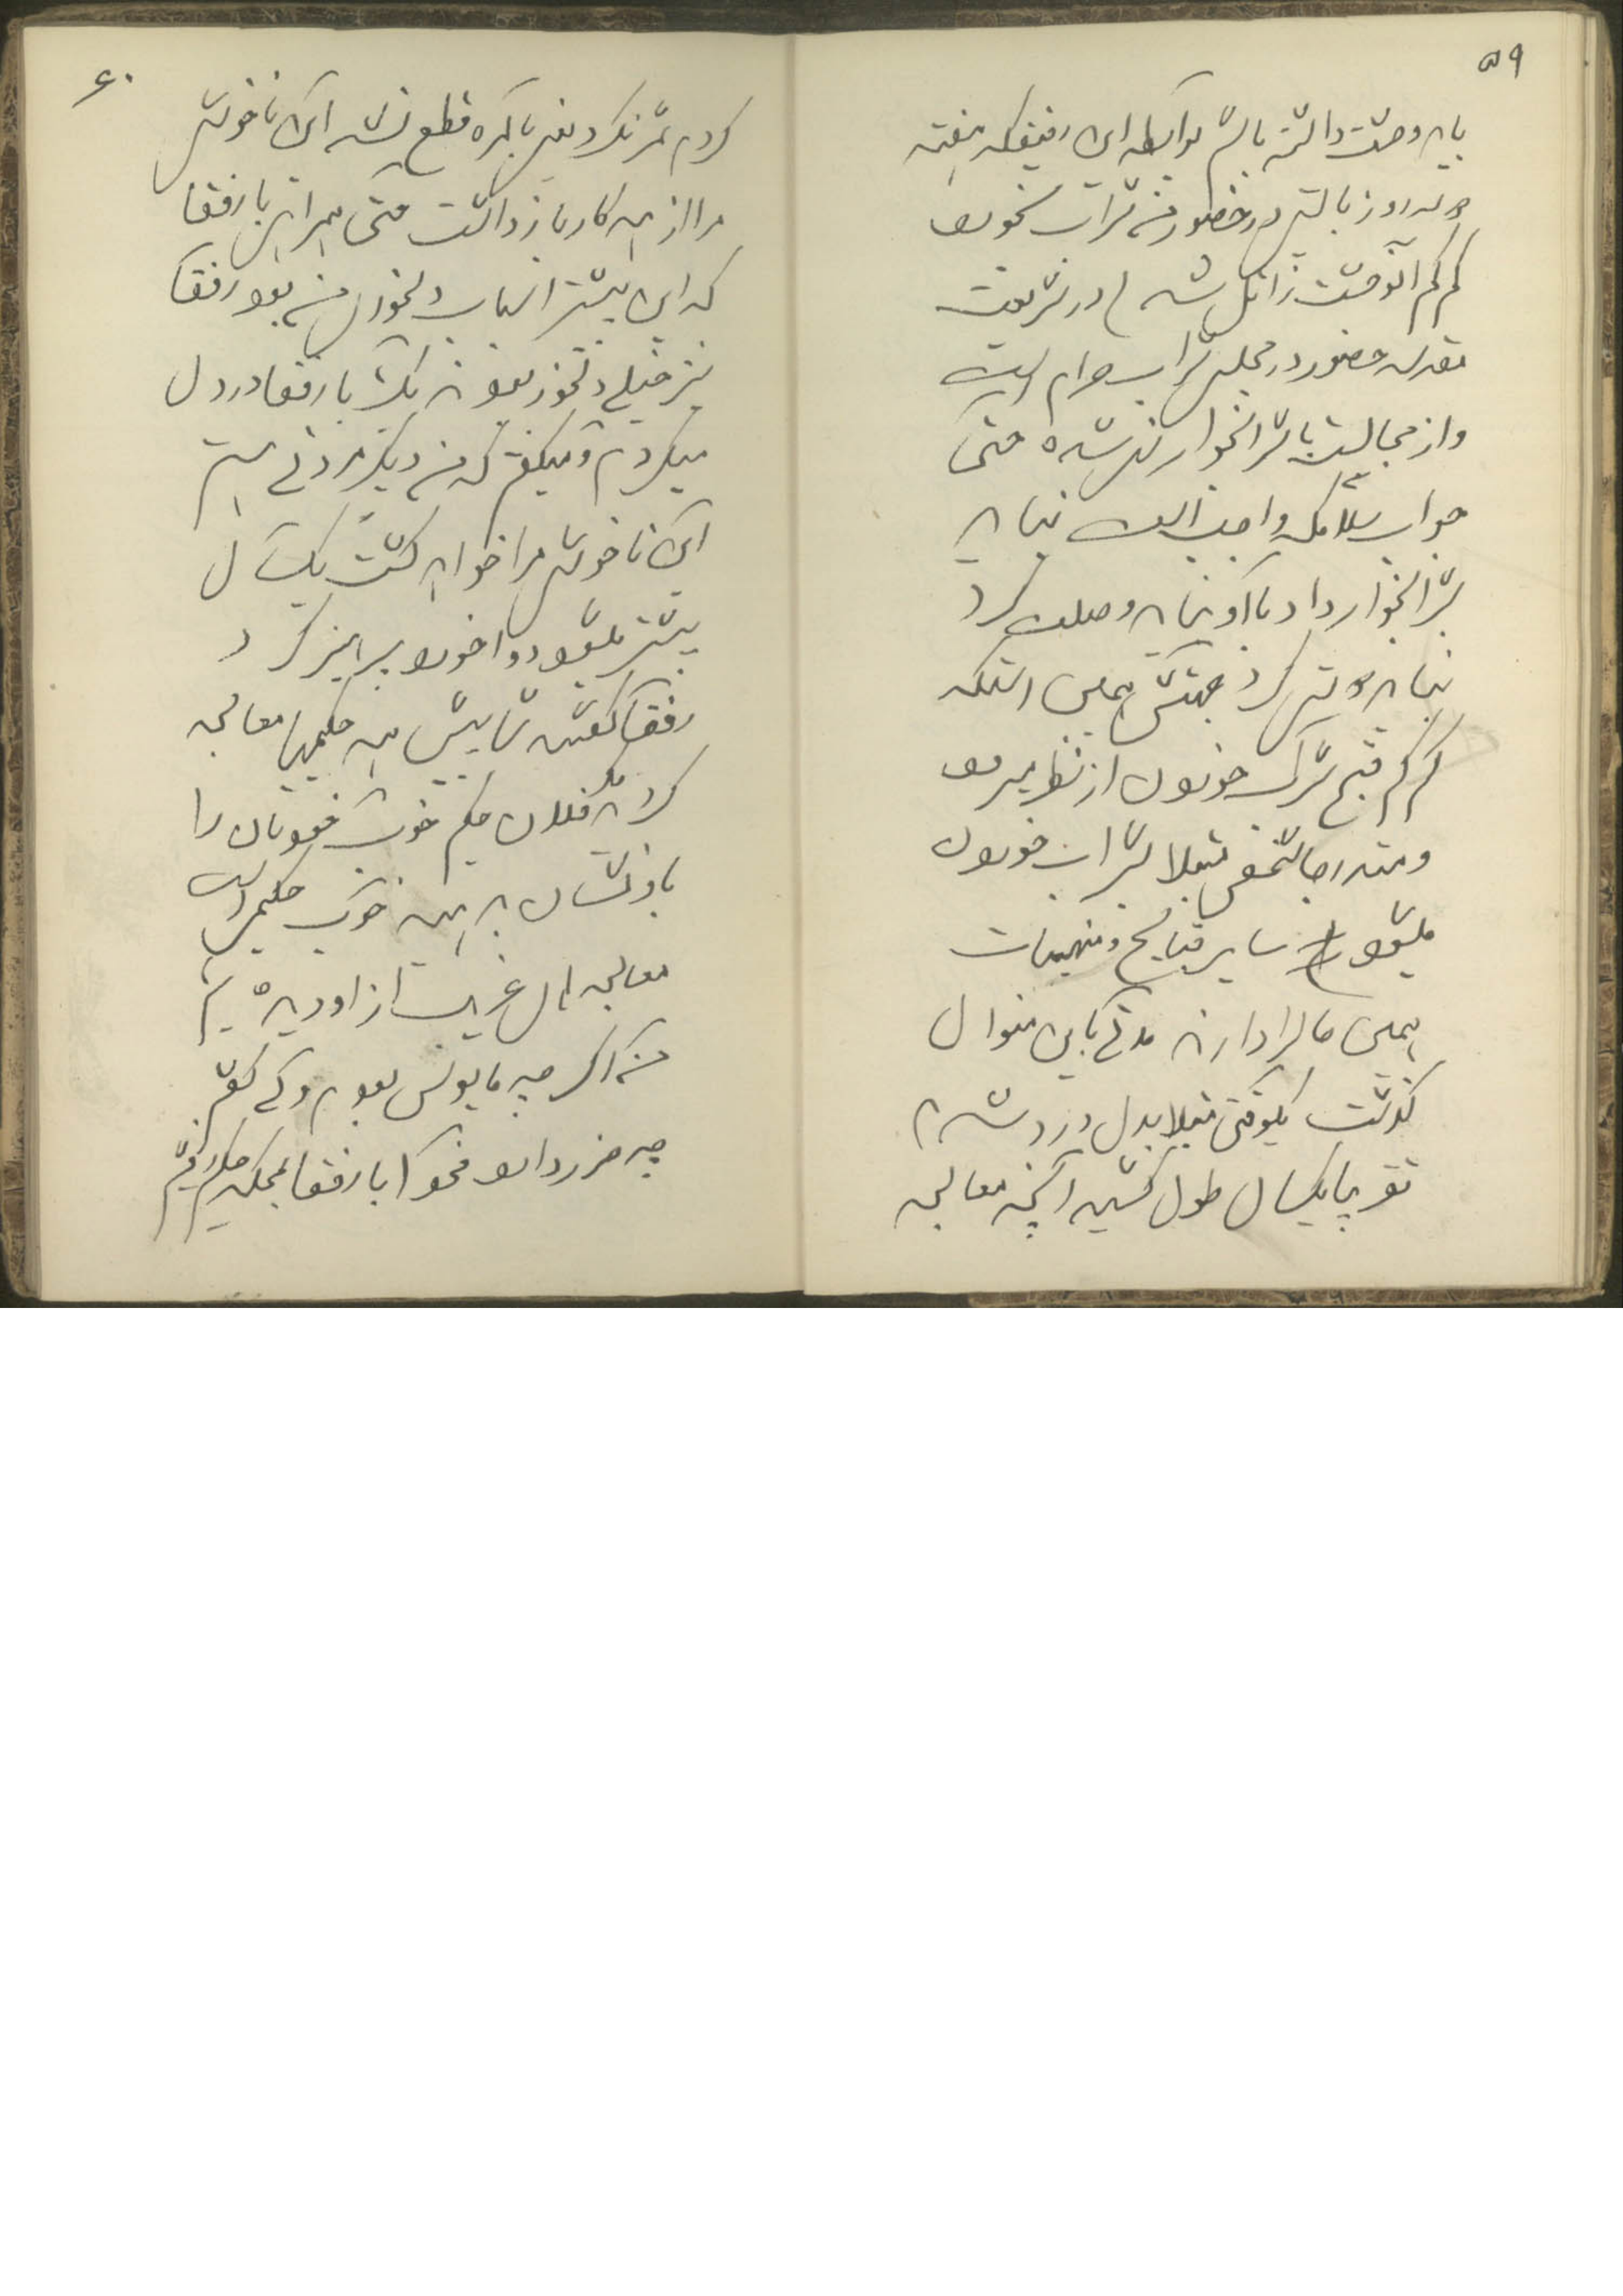 ۵۹
باید وحشت داشته باشم بواسطه این رفیق که هفته
چند روز بالتبع در حضور من شراب میخورد
کم کم آنوحشت زائل شد در شریعت
مقدسه حضور در مجلس شراب حرام است
و از مجالست با شرابخوار نهی شده حتی
جواب سلام که واجب است نباید
بشرابخوار داد با او نباید وصلت کرد
نباید کرد جهتش همین است که
کم کم قبح شراب خوردن از نظر میرود
و متدرجا شخص مبتلا بشراب خوردن
میشود سایر قبایح و منهیات
همین حال را دارند مدتی باین منوال
گذشت یکوقتی مبتلا بدل درد شدم
تقریبا یکسال طول کشید آنچه معالجه
۶۰
کردم ثمر نکرد یعنی بالمره قطع نشد این ناخوشی
مرا از همه کار باز داشت حتی همراهی با رفقا
که این بیشتر اسباب دلخوری من بود رفقا
نیز خیلی دلخور بودند یکشب با رفقا درد دل
میکردم و میگفتم که من دیگر مردنی هستم
این ناخوشی مرا خواهد کشت یکسال
بیشتر میشود دوا خوردم پرهیز کردم
رفقا گفتند شما پیش همه حکیمها معالجه
کردید مگر فلان حکیم خوب خودتان را
باو نشان بدهید خوب حکیمی است
معالجه های غریب از او دیده ایم
من اگر چه مایوس بودم ولی گفتم
چه ضرر دارد فحوا با رفقا بمحکمه حکیم رفتیم